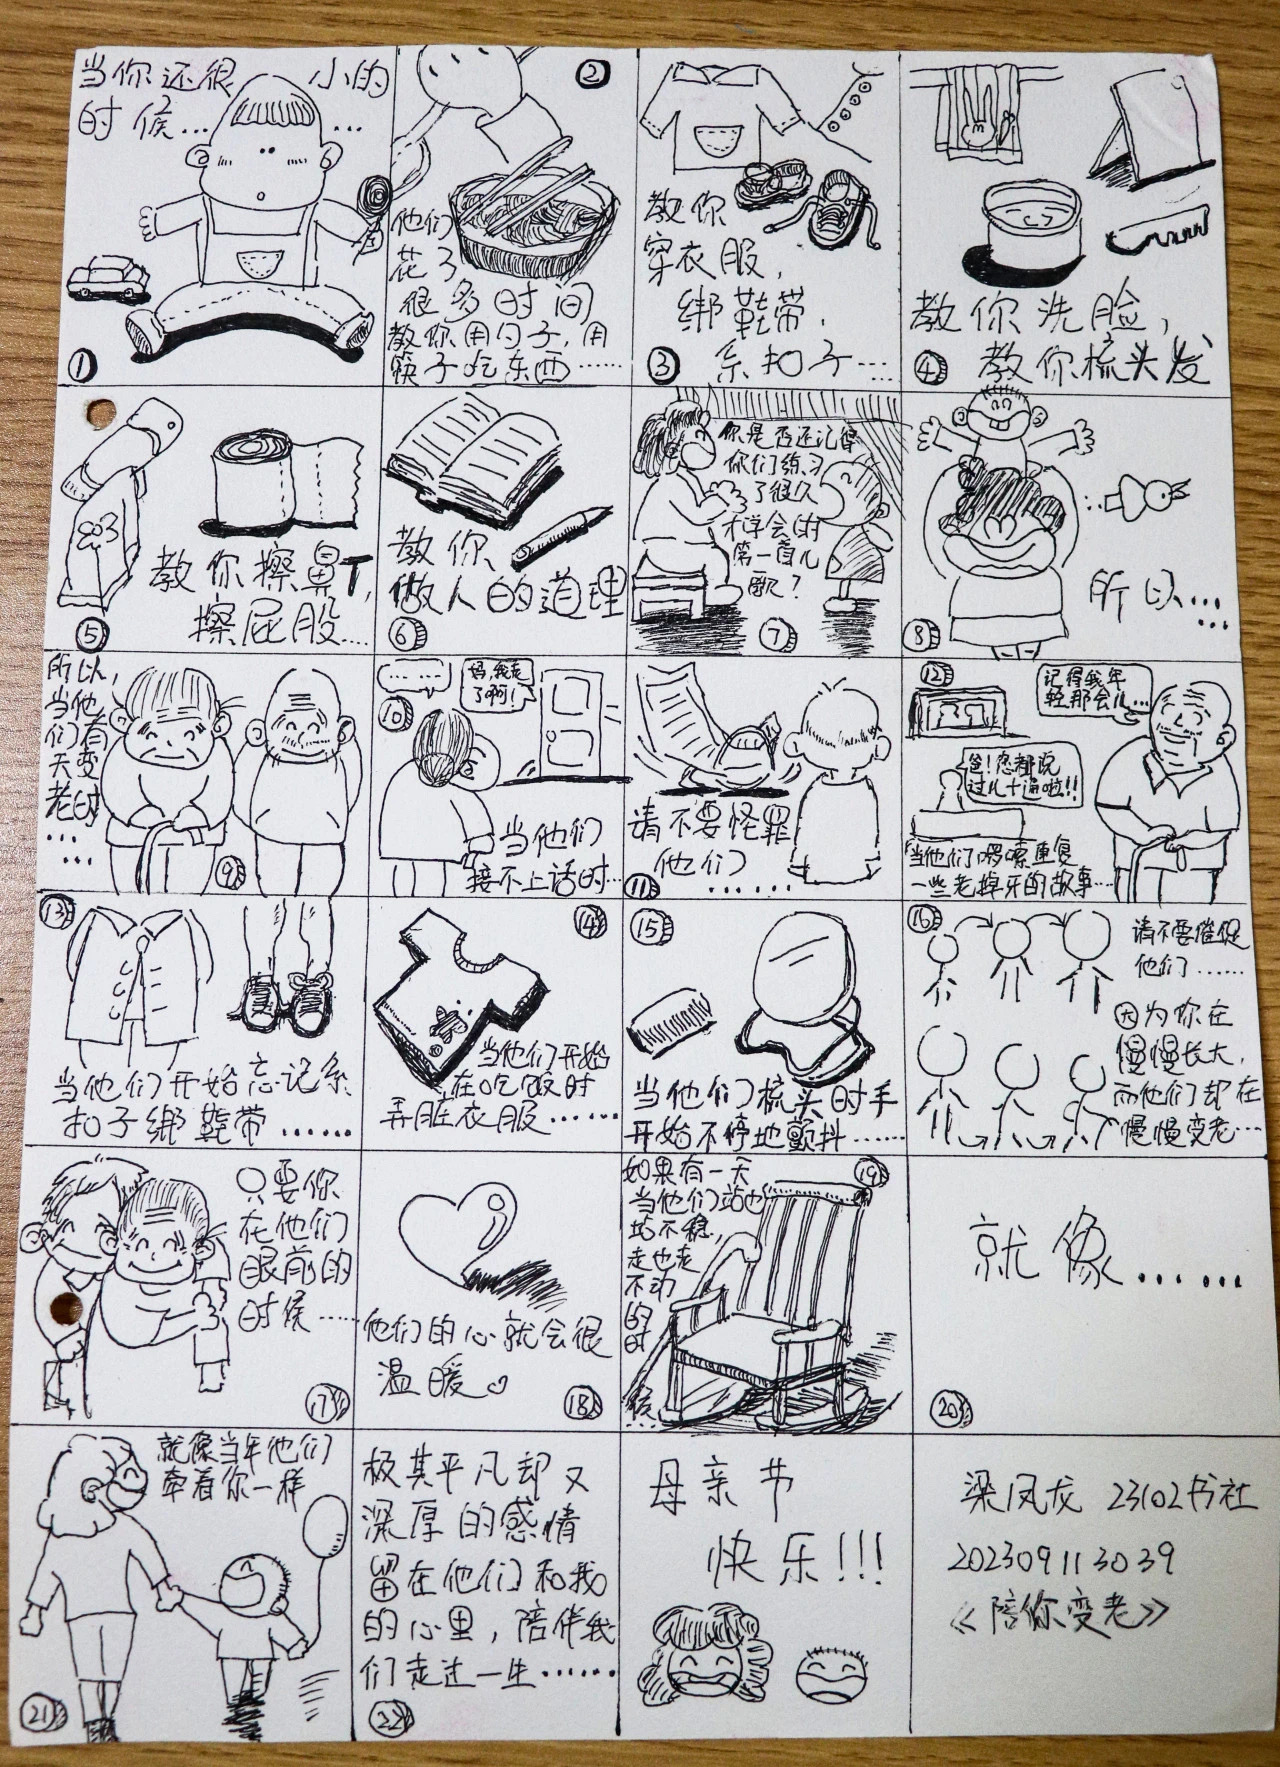 当你还很 小的
时候… …
①
②
他们
花了
很多时间
教你用勺子，用
筷子吃东西……
教你
穿衣服，
绑鞋带，
③ 系扣子…
教你洗脸，
④ 教你梳头发
教你擦鼻丁，
擦屁股…
⑤
教你
做人的道理
⑥
你是否还记得
你们练习
了很久
才学会的
第一首儿
歌？
⑦
所以…
⑧
所以，
当他
们有
天变
老时
……
⑨
……
妈，我走
了啊！
⑩
当他们
接不上话时…
请不要怪罪
他们
⑪ ……
⑫
记得我年
轻那会儿…
爸！您都说
过几十遍啦！！
当他们啰嗦重复
一些老掉牙的故事…
⑬
当他们开始忘记系
扣子绑鞋带……
⑭
当他们开始
在吃饭时
弄脏衣服……
⑮
当他们梳头时手
开始不停地颤抖……
⑯
请不要催促
他们……
因为你在
慢慢长大，
而他们却在
慢慢变老…
只要你
在他们
眼前的
时候……
⑰
他们的心就会很
温暖
⑱
如果有一天 ⑲
当他们站也
站不稳，
走也走
不动
的
时
候
…
就像……
⑳
就像当年他们
牵着你一样
㉑
极其平凡却又
深厚的感情
留在他们和我
的心里，陪伴我
们走过一生……
㉒
母亲节
快乐！！！
梁凤龙 23102书社
20230911 3039
《陪你变老》